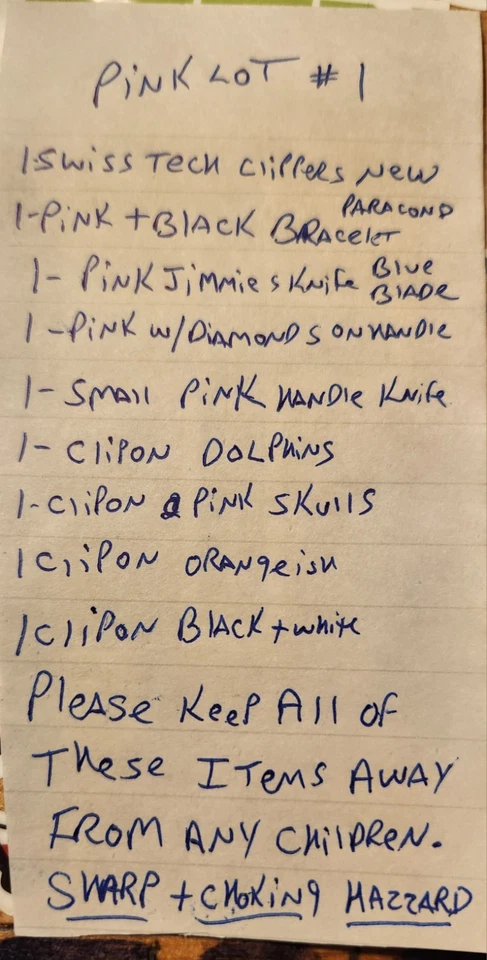 PINK LOT # 1
1-SWISS TECH CLIPPERS NEW
1-PINK + BLACK BRACELET PARACOND
1- PINK JIMMIES KNIFE BLUE BLADE
1-PINK W/DIAMONDS ON HANDLE
1- SMALL PINK HANDLE KNIFE
1- CLIPON DOLPHINS
1-CLIPON 2 PINK SKULLS
1 CLIPON ORANGEISH
1 CLIPON BLACK + WHITE
PLEASE KEEP ALL OF
THESE ITEMS AWAY
FROM ANY CHILDREN.
SHARP + CHOKING HAZZARD